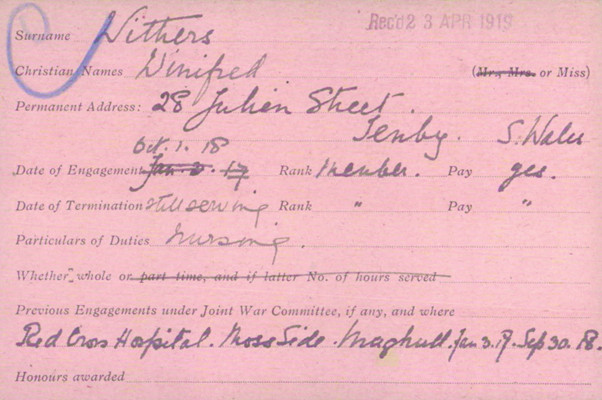 Rec'd 23 APR 1919
Surname Withers
Christian Names Winifred (Mr., Mrs. or Miss)
Permanent Address: 28 Julien Street.
Tenby. S. Wales
Oct. 1. 18
Date of Engagement Jan 2. 17 Rank Member. Pay yes.
Date of Termination still serving Rank " Pay "
Particulars of Duties Nursing.
Whether whole or part time, and if latter No. of hours served
Previous Engagements under Joint War Committee, if any, and where
Red Cross Hospital. Moss Side. Maghull. Jan 3. 17. Sep 30. 18.
Honours awarded